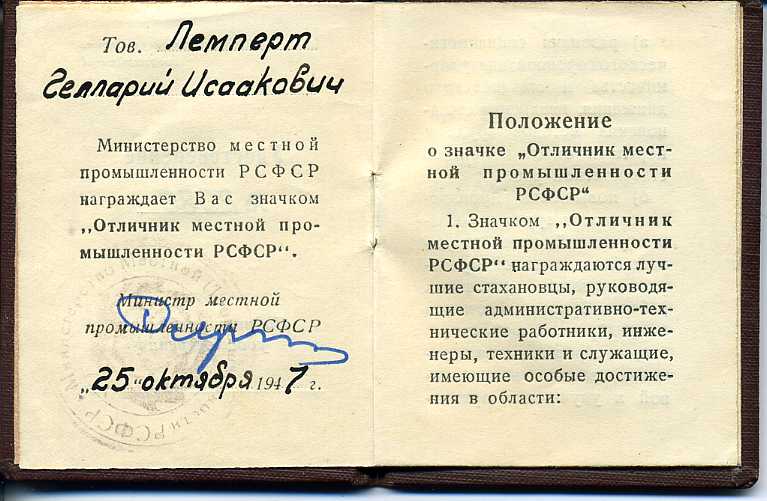 Тов. Лемперт
Гелларий Исаакович
Министерство местной
промышленности РСФСР
награждает Вас значком
„Отличник местной про-
мышленности РСФСР“.
Министр местной
промышленности РСФСР
„25“ октября 1947 г.
Положение
о значке „Отличник мест-
ной промышленности
РСФСР“
1. Значком „Отличник
местной промышленности
РСФСР“ награждаются луч-
шие стахановцы, руководя-
щие административно-тех-
нические работники, инже-
неры, техники и служащие,
имеющие особые достиже-
ния в области: